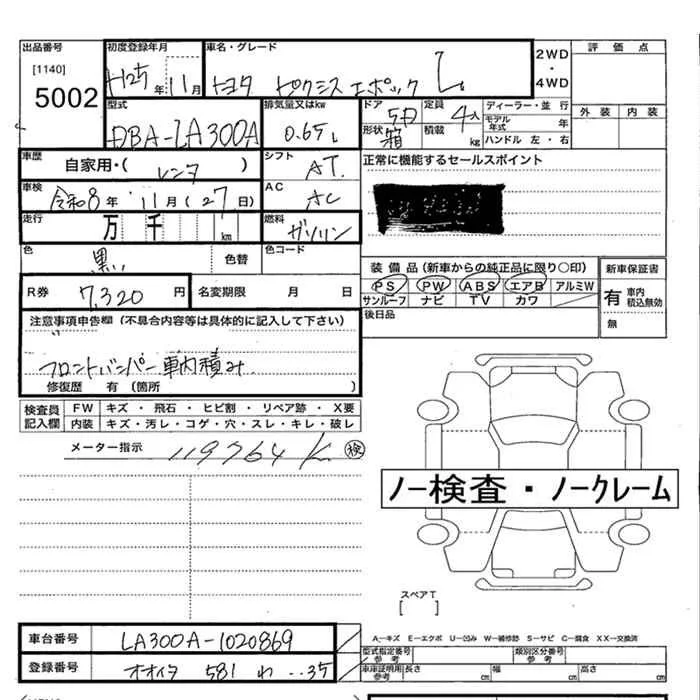 出品番号 初度登録年月 車名・グレード 2WD・4WD 評価点
[1140] 5002 H25年11月 トヨタ ピクシス エポック L
外装 内装
型式 排気量又はkw ドア 5D 定員 4人 ディーラー・並行
DBA-LA300A 0.65L 形状 箱 積載 kg モデル年式 年
ハンドル 左・右
車歴 自家用・(レンタ) シフト AT 正常に機能するセールスポイント
車検 令和8年 11月(27日) AC AC
走行 万 千 km 燃料 ガソリン
色 黒 色替 色コード
装備品(新車からの純正品に限り○印) 新車保証書
PS PW ABS エアB アルミW 有 車内積込無効
サンルーフ ナビ TV カワ
R券 7,320円 名変期限 月 日 後日品 無
注意事項申告欄(不具合内容等は具体的に記入して下さい)
フロントバンパー車内積み
修復歴 有(箇所 )
検査員記入欄 FW キズ・飛石・ヒビ割・リペア跡・X要
内装 キズ・汚レ・コゲ・穴・スレ・キレ・破レ
メーター指示 119764K 検
ノー検査・ノークレーム
スペアT
[ ]
A…キズ E…エクボ U…凹み W…補修跡 S…サビ C…腐食 XX…交換済
車台番号 LA300A-1020869 型式指定番号 参考 類別区分番号 参考
登録番号 オオイタ 581 わ ..35 車庫証明用参考 長さ cm 幅 cm 高さ cm